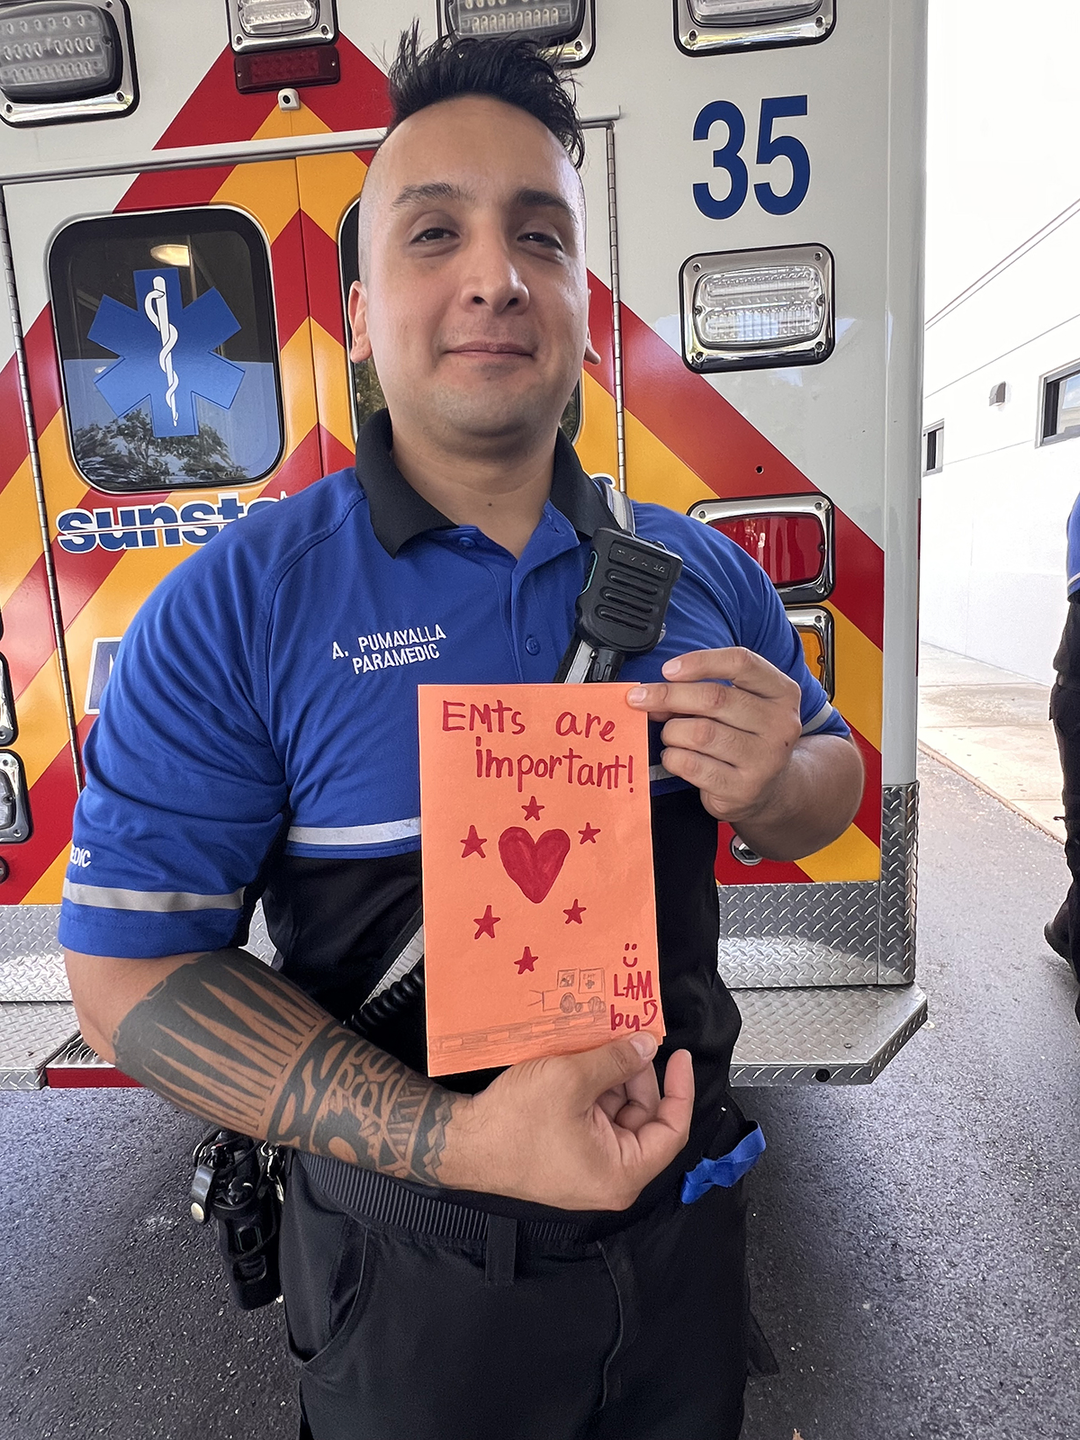 35
sunst
A. PUMAYALLA
PARAMEDIC
EMts are
important!
LAM
by
EDIC